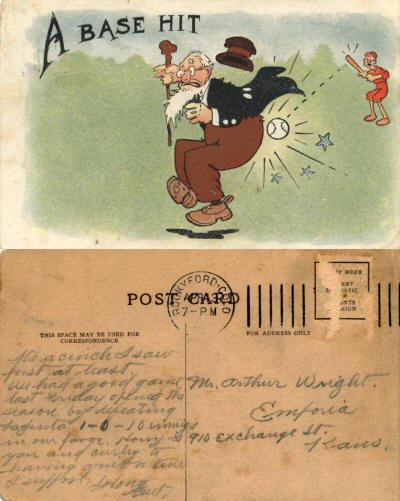 A BASE HIT
POST CARD
ROCKYFORD, COLO
7-PM
THIS SPACE MAY BE USED FOR
CORRESPONDENCE
FOR ADDRESS ONLY
a cinch I saw
first at least.
We had a good game
last Friday opened the
season by defeating
1-0-10 innings
in our favor. How is
you and
having a time
I suppose. So long
Mr. Arthur Wright.
Emporia
910 Exchange St.
Kans.